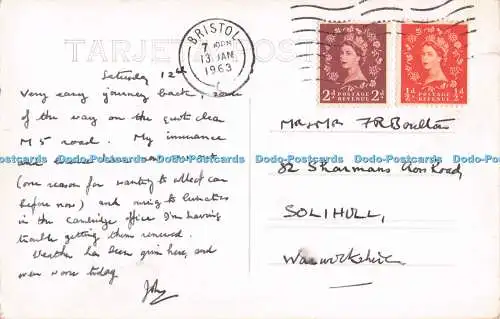 TARJETA POSTAL
BRISTOL
7 PM
13 JAN
1963
2d POSTAGE REVENUE 2d
½d POSTAGE REVENUE ½d
Saturday 12th
Very easy journey back, some
of the way on the quite clear
M5 road. My insurance
(one reason for wanting to collect car
before now) and owing to lunatics
in the Cambridge office I'm having
trouble getting them renewed.
Weather has been grim here, and
even worse today.
John
Mr & Mrs F R Boulton
82 Sharmans Cross Road,
SOLIHULL,
Warwickshire
Dodo-Postcards Dodo-Postcards Dodo-Postcards Dodo-Postcards Dodo-Postcards